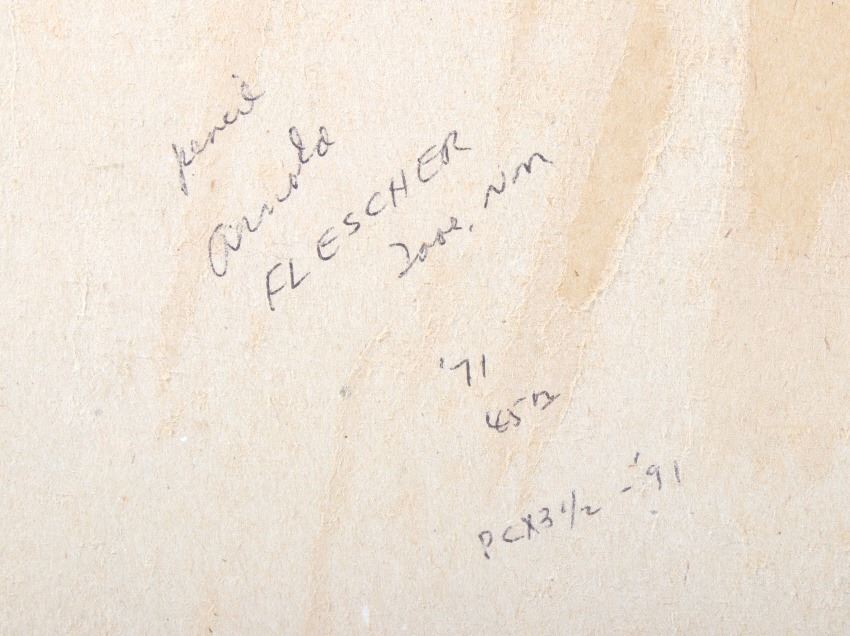 pencil
Arnold
FLESCHER
Taos, NM
'71
45
PCX3 1/2 - '91